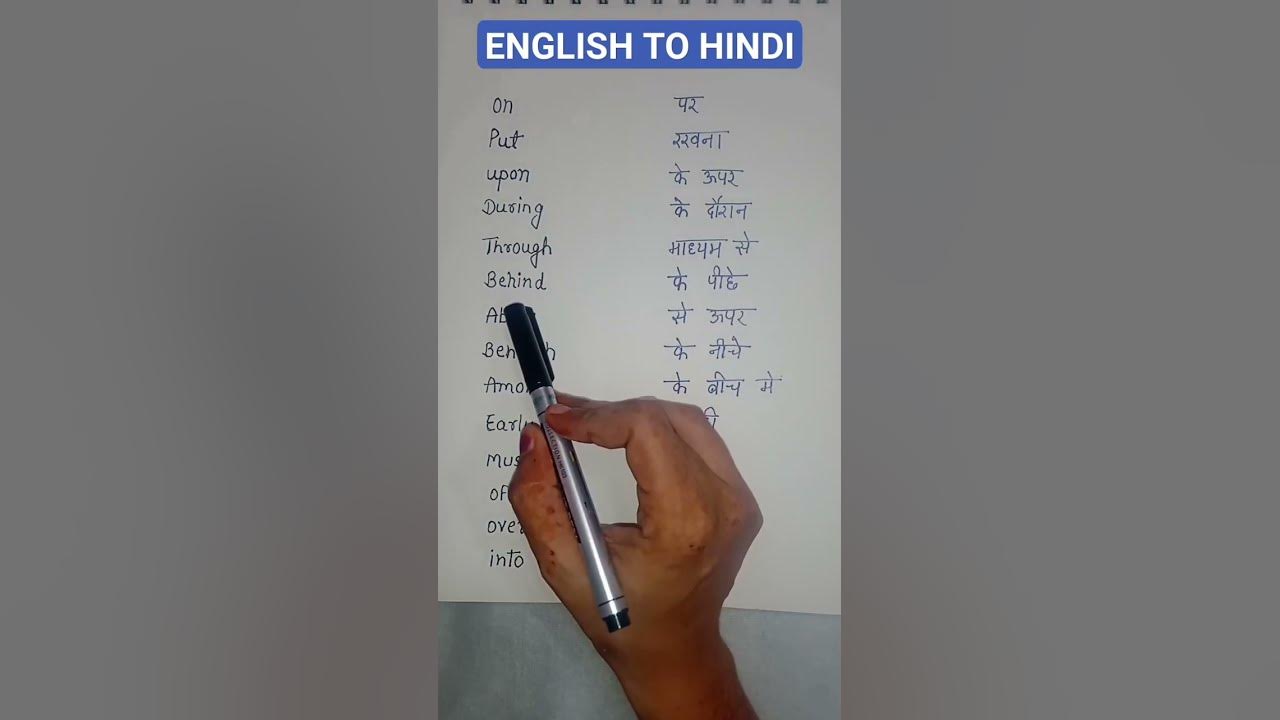 ENGLISH TO HINDI
on पर
Put रखना
upon के ऊपर
During के दौरान
Through माध्यम से
Behind के पीछे
से ऊपर
के नीचे
के बीच में
over
into